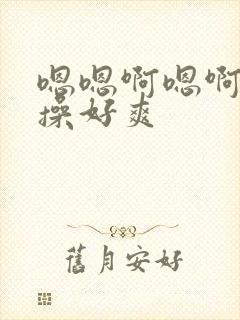 嗯嗯啊嗯啊
操好爽
舊月安好